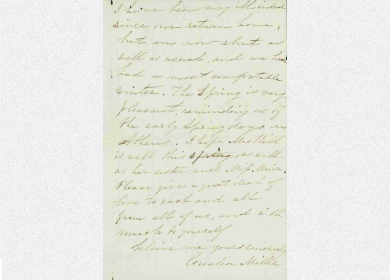 I have been very ill indeed
since our return home,
but am now about as
well as usual, and we have
had a most comfortable
winter. The Spring is very
pleasant, reminding us of
the early Spring days in
Athens. I hope
is well this spring, as well
as her sister, and Miss
Please give a great deal of
love to each and all
from all of us, and with
much to yourself
believe me yours sincerely